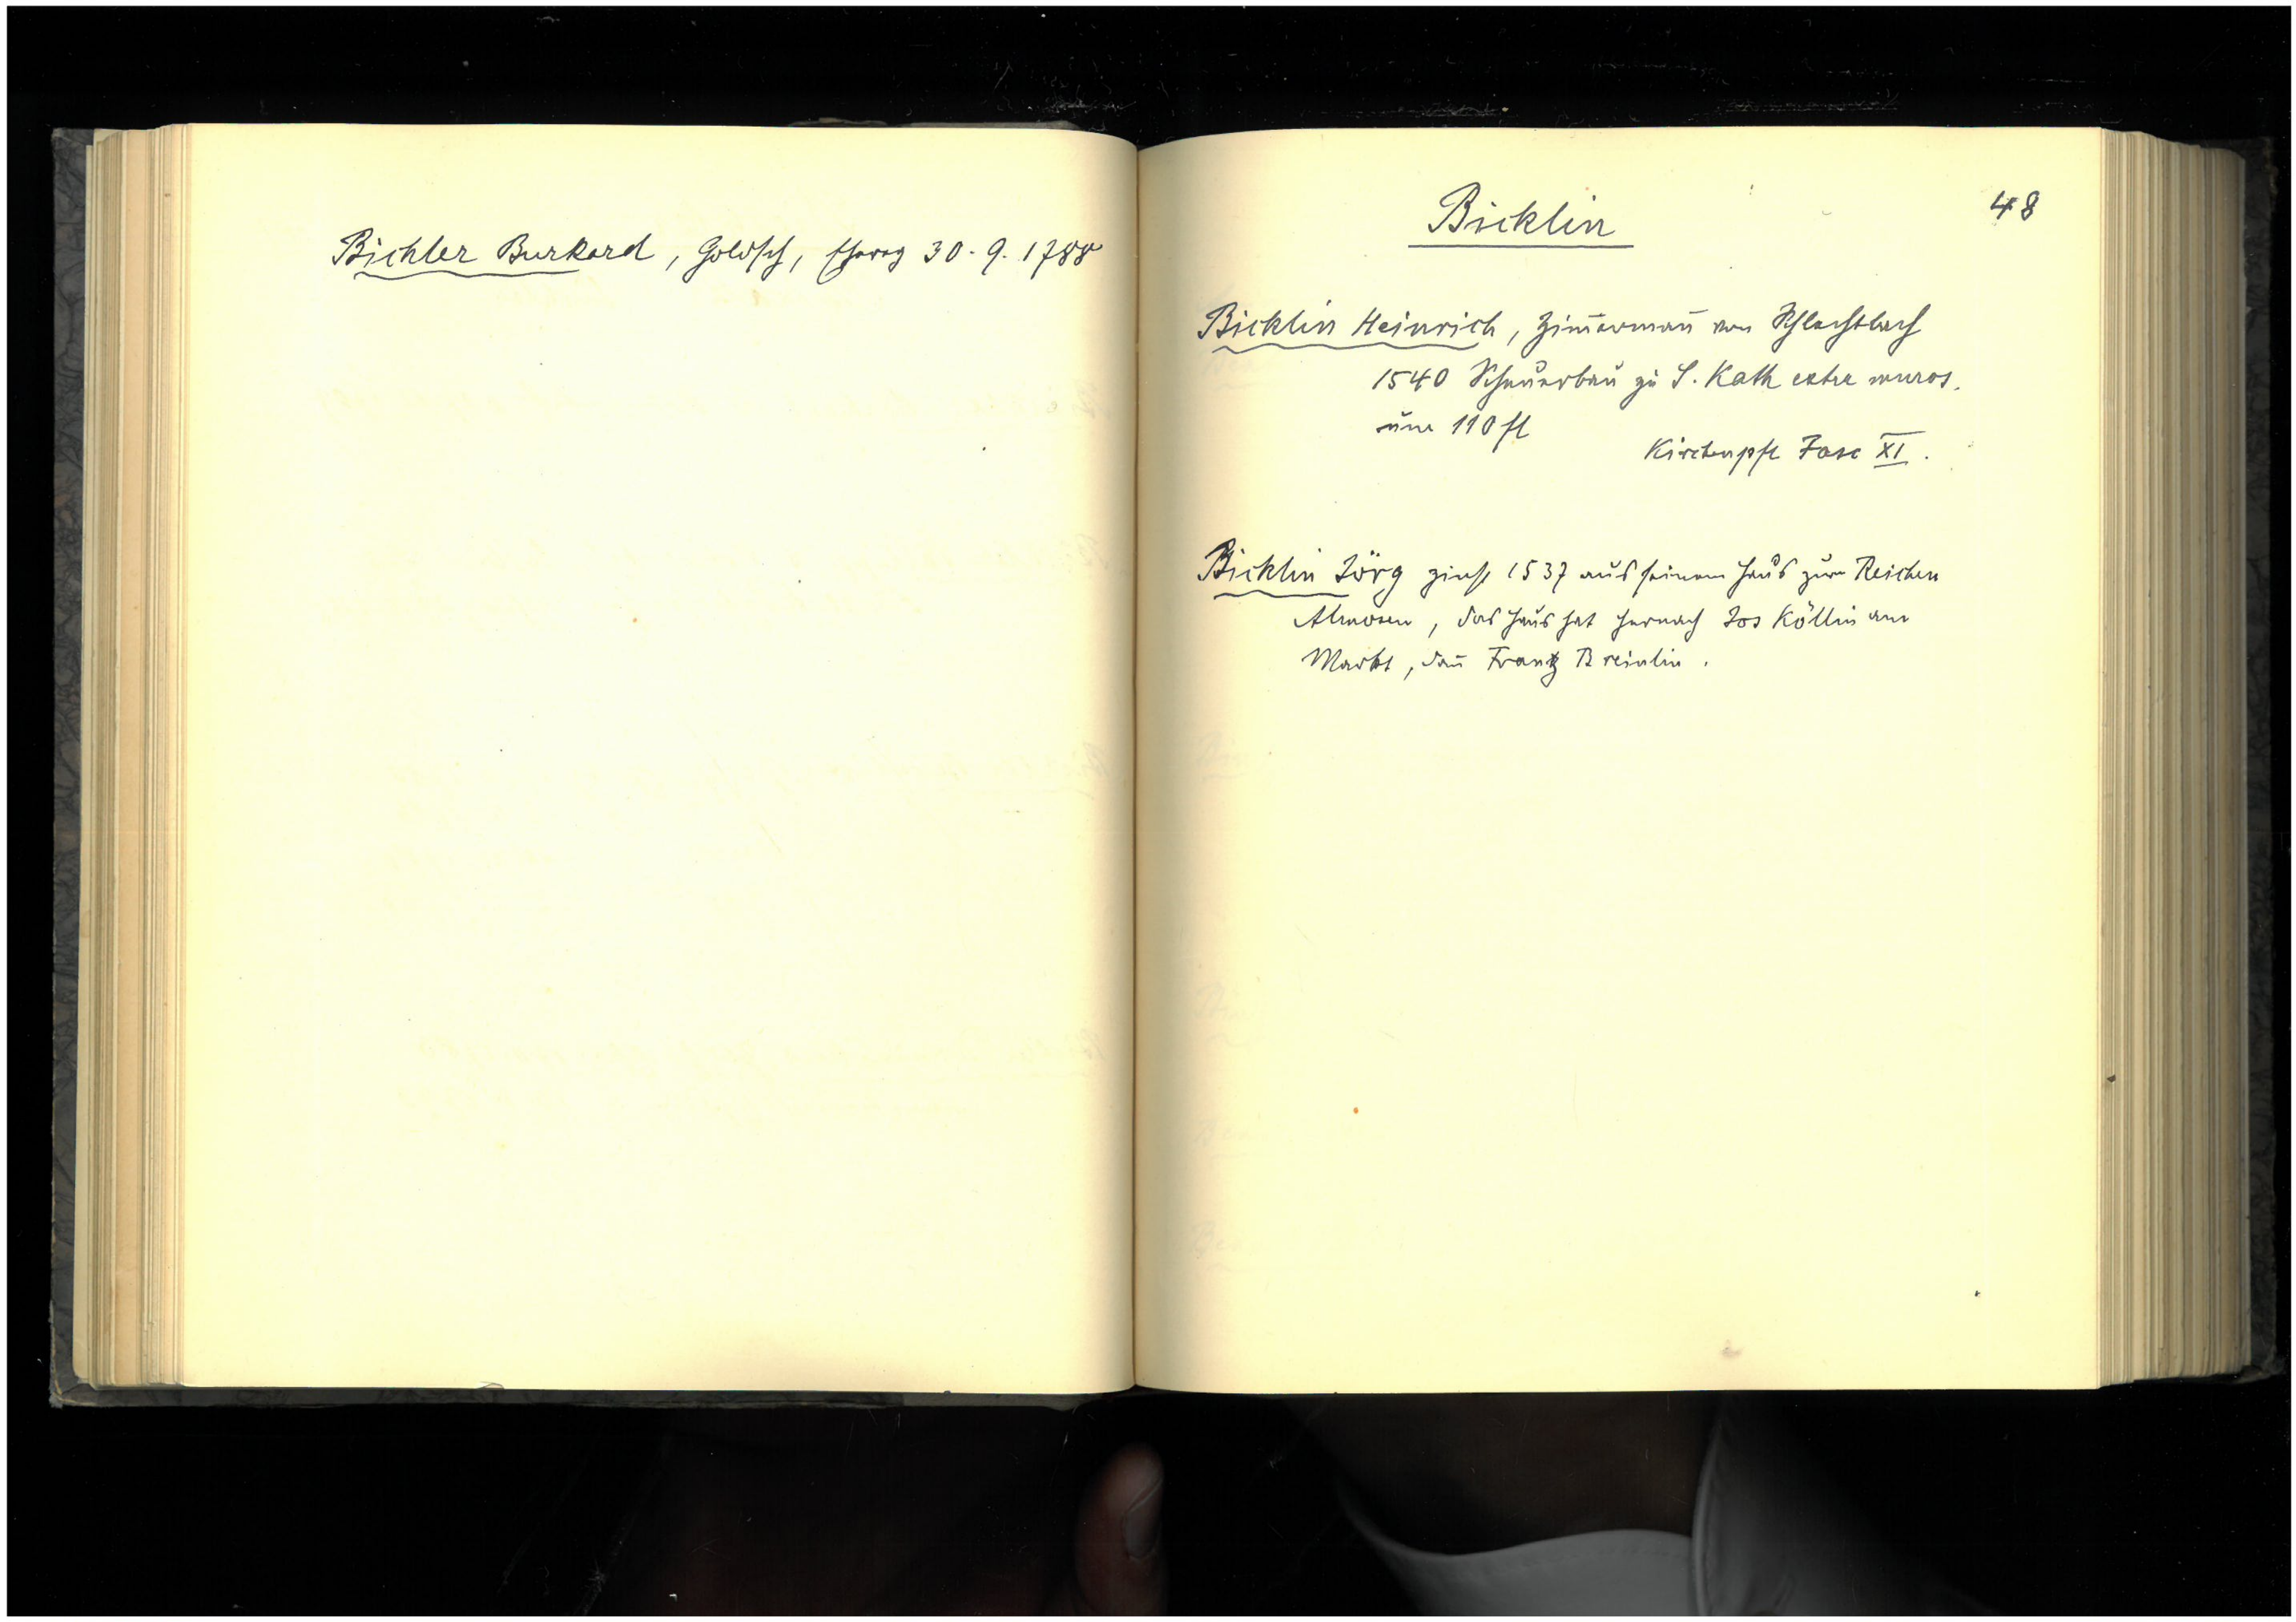 Bichler Burkard, Goldsch, Eherog 30. 9. 1788
48
Bicklin
Bicklin Heinrich, Zim̄erman̄ von Schlechtbach
1540 Scheuerbau zu S. Kath extra muros.
um 110 fl
Kirchenpfl Fasc XI.
Bicklin Jörg zinst 1537 aus seinem Haus zum Reichen
Almosen, das Haus hat hernach Jos Köllin am
Markt, dan̄ Frantz Breinlin.